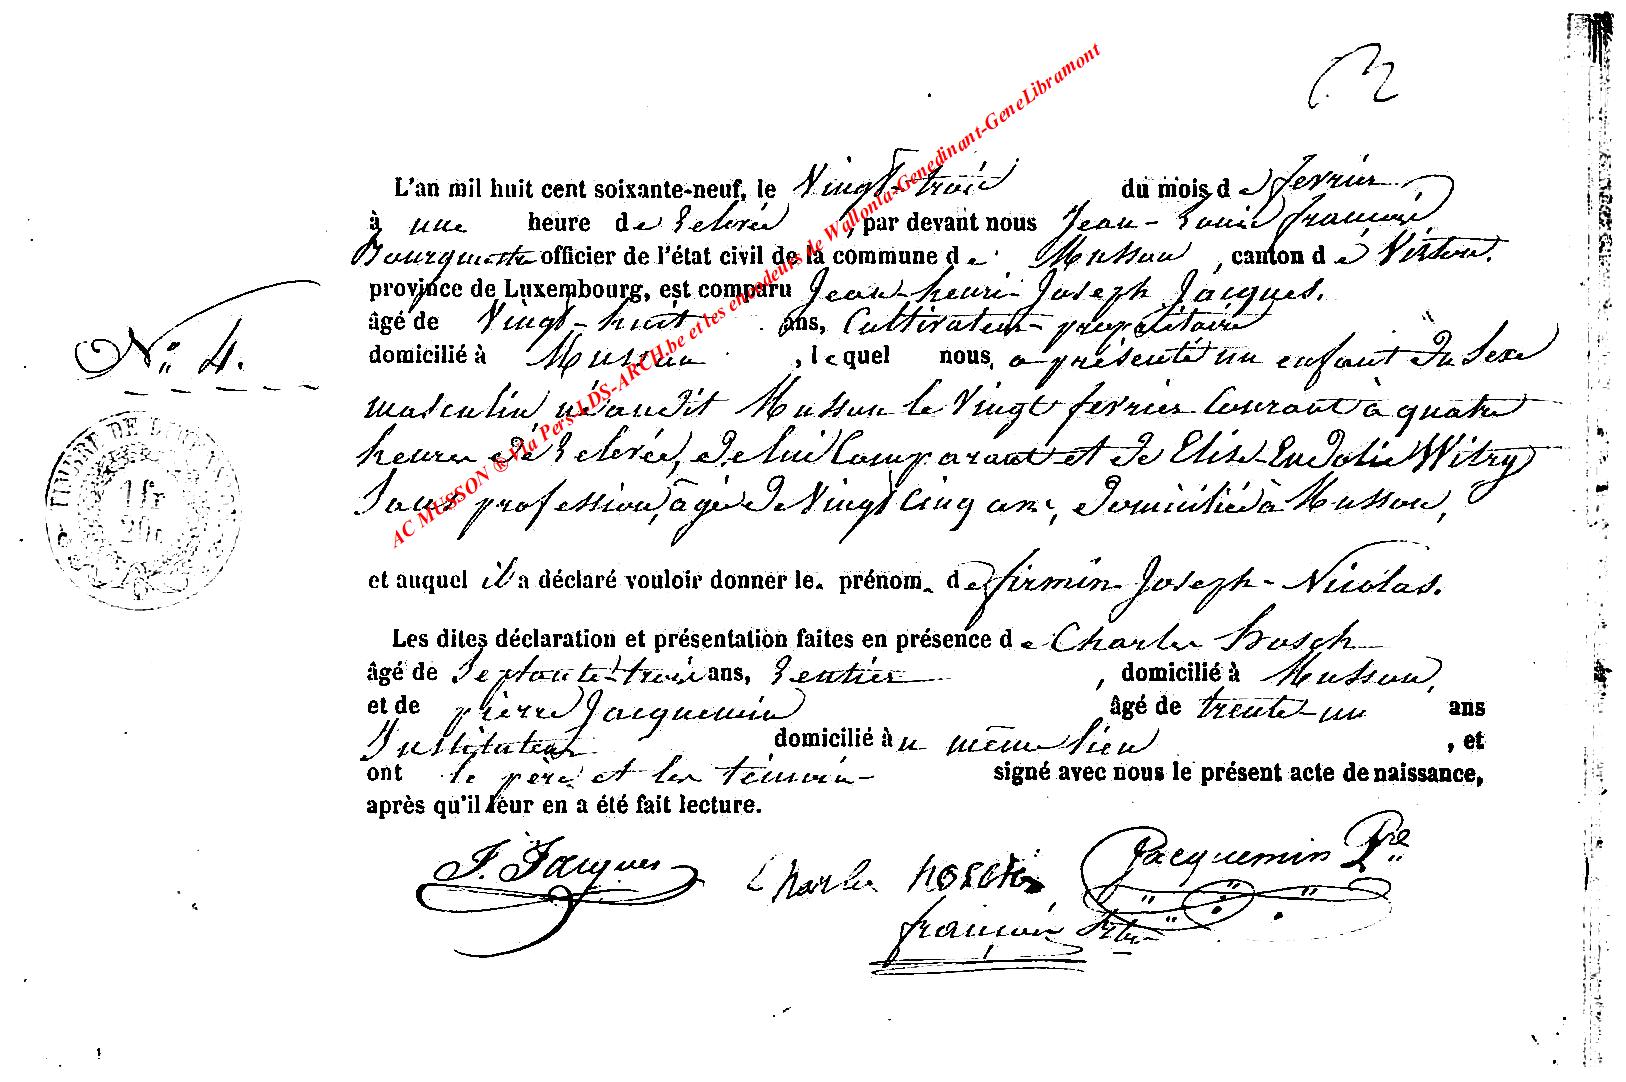 L'an mil huit cent soixante-neuf, le Vingt-trois du mois de fevrier
à une heure de Relevée, par devant nous Jean-Louis françois
officier de l'état civil de la commune de Musson, canton de Virton.
province de Luxembourg, est comparu Jean-henri-Joseph Jacques.
âgé de Vingt-huit ans, Cultivateur-propriétaire
domicilié à Musson, lequel nous, a présenté un enfant du sexe
N° 4.
masculin né audit Musson le Vingt fevrier Courant à quatre
heures de Relevée, de lui Comparant et de Elise-Eudolie Witry
Sans profession, âgée de Vingt Cinq ans, domiciliée à Musson,
TIMBRE DE
1 fr
20c
et auquel il a déclaré vouloir donner le. prénom. de firmin Joseph-Nicolas.
Les dites déclaration et présentation faites en présence de Charles Hosch
âgé de Septante-trois ans, Rentier, domicilié à Musson,
et de pierre Jacquemin âgé de trente-un ans
Instituteur domicilié au même lieu, et
ont le père et les témoins signé avec nous le présent acte de naissance,
après qu'il leur en a été fait lecture.
J. Jacques Charles Jacquemin Pre
françois
AC MUSSON ® Via Pers-LDS-ARCH.be et les encodeurs de Wallonia-Genedinant-GeneLibramont